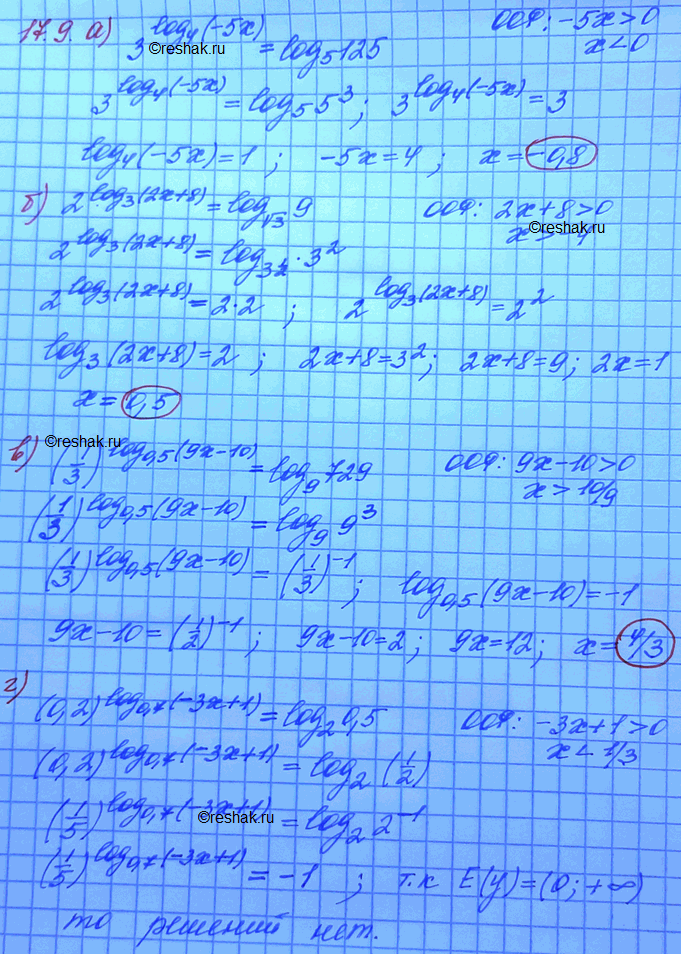 17.9. а) 3^{log₄(-5x)} = log₅125   ООФ: -5x>0
x<0
©reshak.ru
3^{log₄(-5x)} = log₅5³; 3^{log₄(-5x)} = 3
log₄(-5x)=1; -5x=4; x=-0,8
б) 2^{log₃(2x+8)} = log_{√3}9   ООФ: 2x+8>0
x>-4
©reshak.ru
2^{log₃(2x+8)} = log_{3^{1/2}}·3²
2^{log₃(2x+8)} = 2·2; 2^{log₃(2x+8)} = 2²
log₃(2x+8)=2; 2x+8=3²; 2x+8=9; 2x=1
x=0,5
©reshak.ru
в) (1/3)^{log_{0,5}(9x-10)} = log₉729   ООФ: 9x-10>0
x>10/9
(1/3)^{log_{0,5}(9x-10)} = log₉9³
(1/3)^{log_{0,5}(9x-10)} = (1/3)^{-1}; log_{0,5}(9x-10)=-1
9x-10=(1/2)^{-1}; 9x-10=2; 9x=12; x=4/3
г) (0,2)^{log_{0,7}(-3x+1)} = log₂0,5   ООФ: -3x+1>0
x<1/3
(0,2)^{log_{0,7}(-3x+1)} = log₂(1/2)
(1/5)^{log_{0,7}(-3x+1)} = log₂2^{-1}
©reshak.ru
(1/5)^{log_{0,7}(-3x+1)} = -1; т.к E(y)=(0;+∞)
то решений нет.